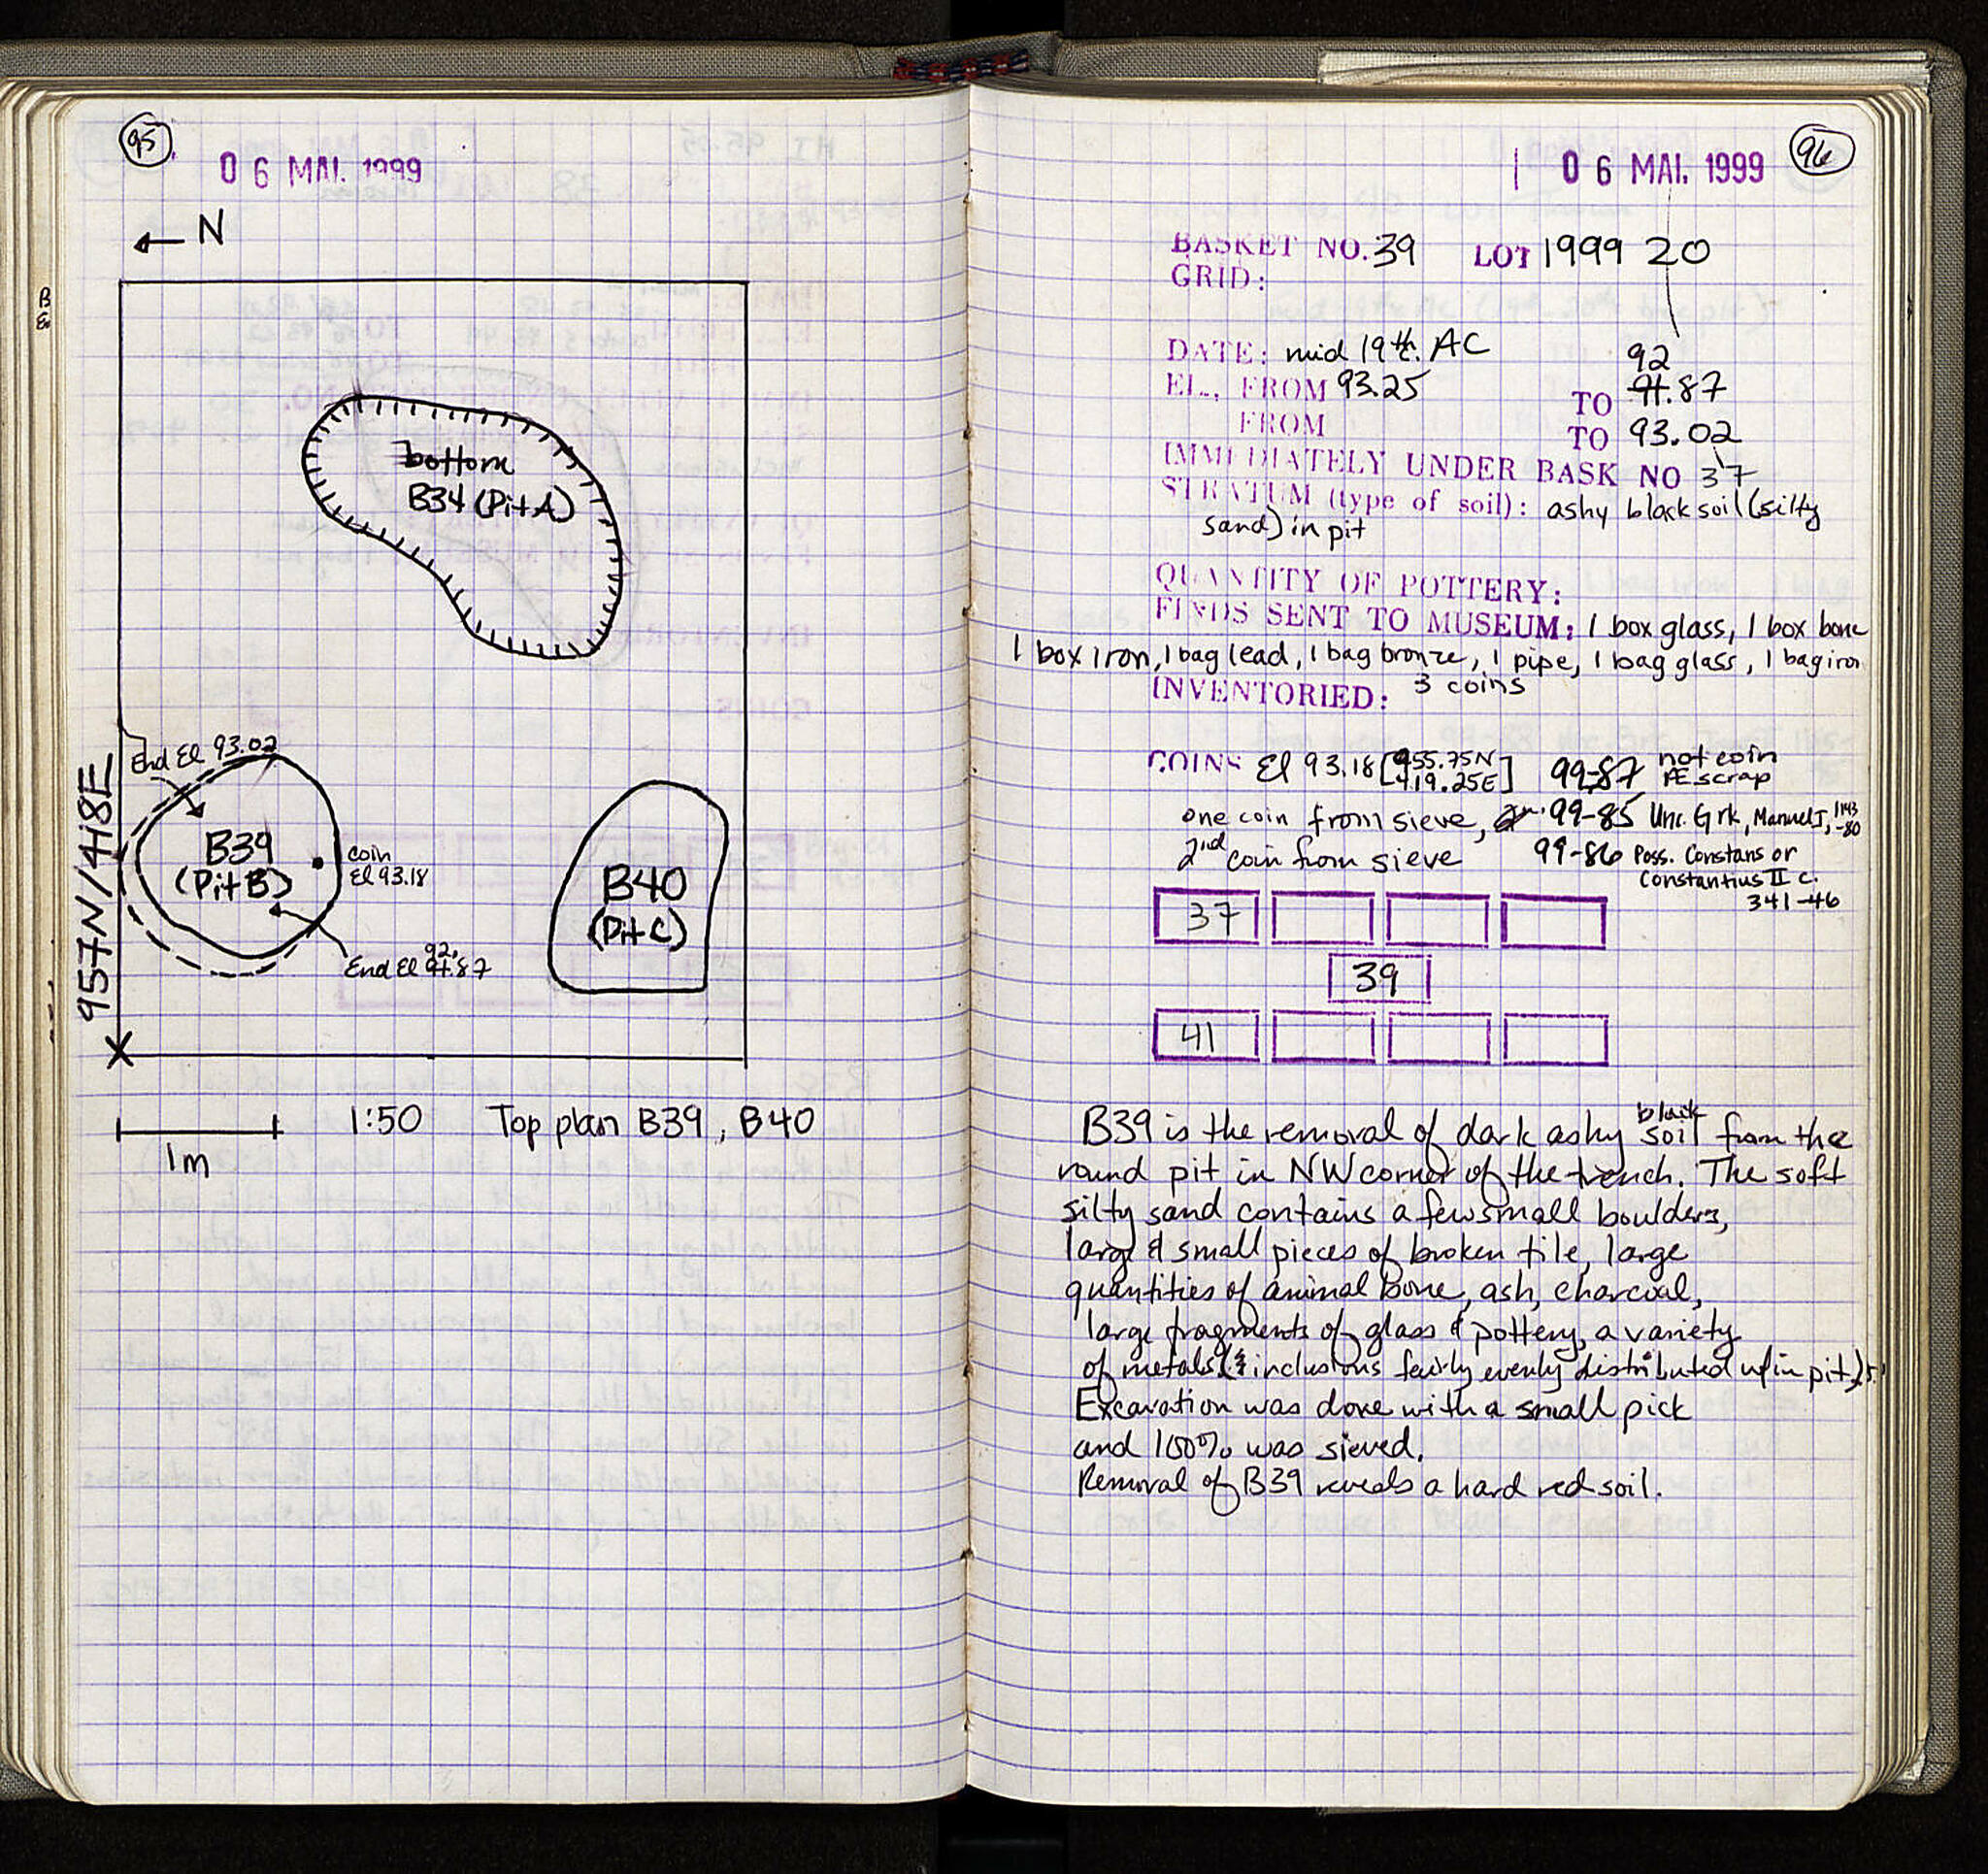 95
06 MAI. 1999
N
bottom
B34 (Pit A)
End El 93.02
B39
(Pit B)
coin
El 93.18
End El 92.
91.87
B40
(Pit C)
957N/418E
X
1m
1:50 Top plan B39, B40
96
06 MAI. 1999
BASKET NO. 39 LOT 1999 20
GRID:
DATE: mid 19th c. AC
92
EL., FROM 93.25 TO 91.87
FROM TO 93.02
IMMEDIATELY UNDER BASK NO 37
STRATUM (type of soil): ashy black soil (silty
sand) in pit
QUANTITY OF POTTERY:
FINDS SENT TO MUSEUM: 1 box glass, 1 box bone
1 box iron, 1 bag lead, 1 bag bronze, 1 pipe, 1 bag glass, 1 bag iron
INVENTORIED: 3 coins
COINS El 93.18 [955.75N 419.25E] 99-87 not coin Æ scrap
one coin from sieve, 99-85 Unc. Grk, Manuel I, 1143-80
2nd coin from sieve 99-86 Poss. Constans or
Constantius II c.
341-46
37
39
41
B39 is the removal of dark ashy black soil from the
round pit in NW corner of the trench. The soft
silty sand contains a few small boulders,
large & small pieces of broken tile, large
quantities of animal bone, ash, charcoal,
large fragments of glass & pottery, a variety
of metals (& inclusions fairly evenly distributed w/in pit)
Excavation was done with a small pick
and 100% was sieved.
Removal of B39 reveals a hard red soil.